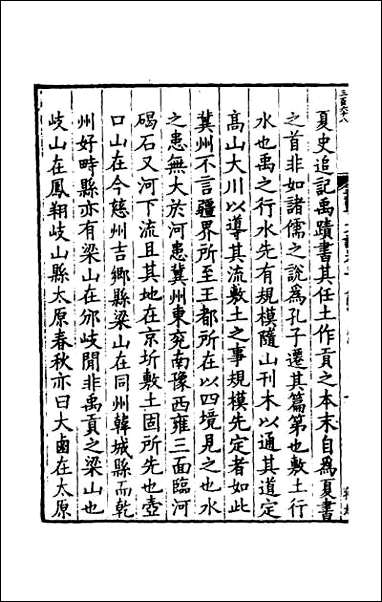 夏史追記禹蹟書其任土作貢之本末自爲夏書
之首非如諸儒之說爲孔子遷其篇第也敷土行
水也禹之行水先有規模隨山刊木以通其道定
高山大川以導其流敷土之事規模先定者如此
冀州不言疆界所至王都所在以四境見之也水
之患無大於河患冀州東兖南豫西雍三面臨河
碣石又河下流且其地在京圻敷土固所先也壺
口山在今慈州吉鄉縣梁山在同州韓城縣而乾
州好畤縣亦有梁山在邠岐閒非禹貢之梁山也
岐山在鳳翔岐山縣太原春秋亦曰大鹵在太原